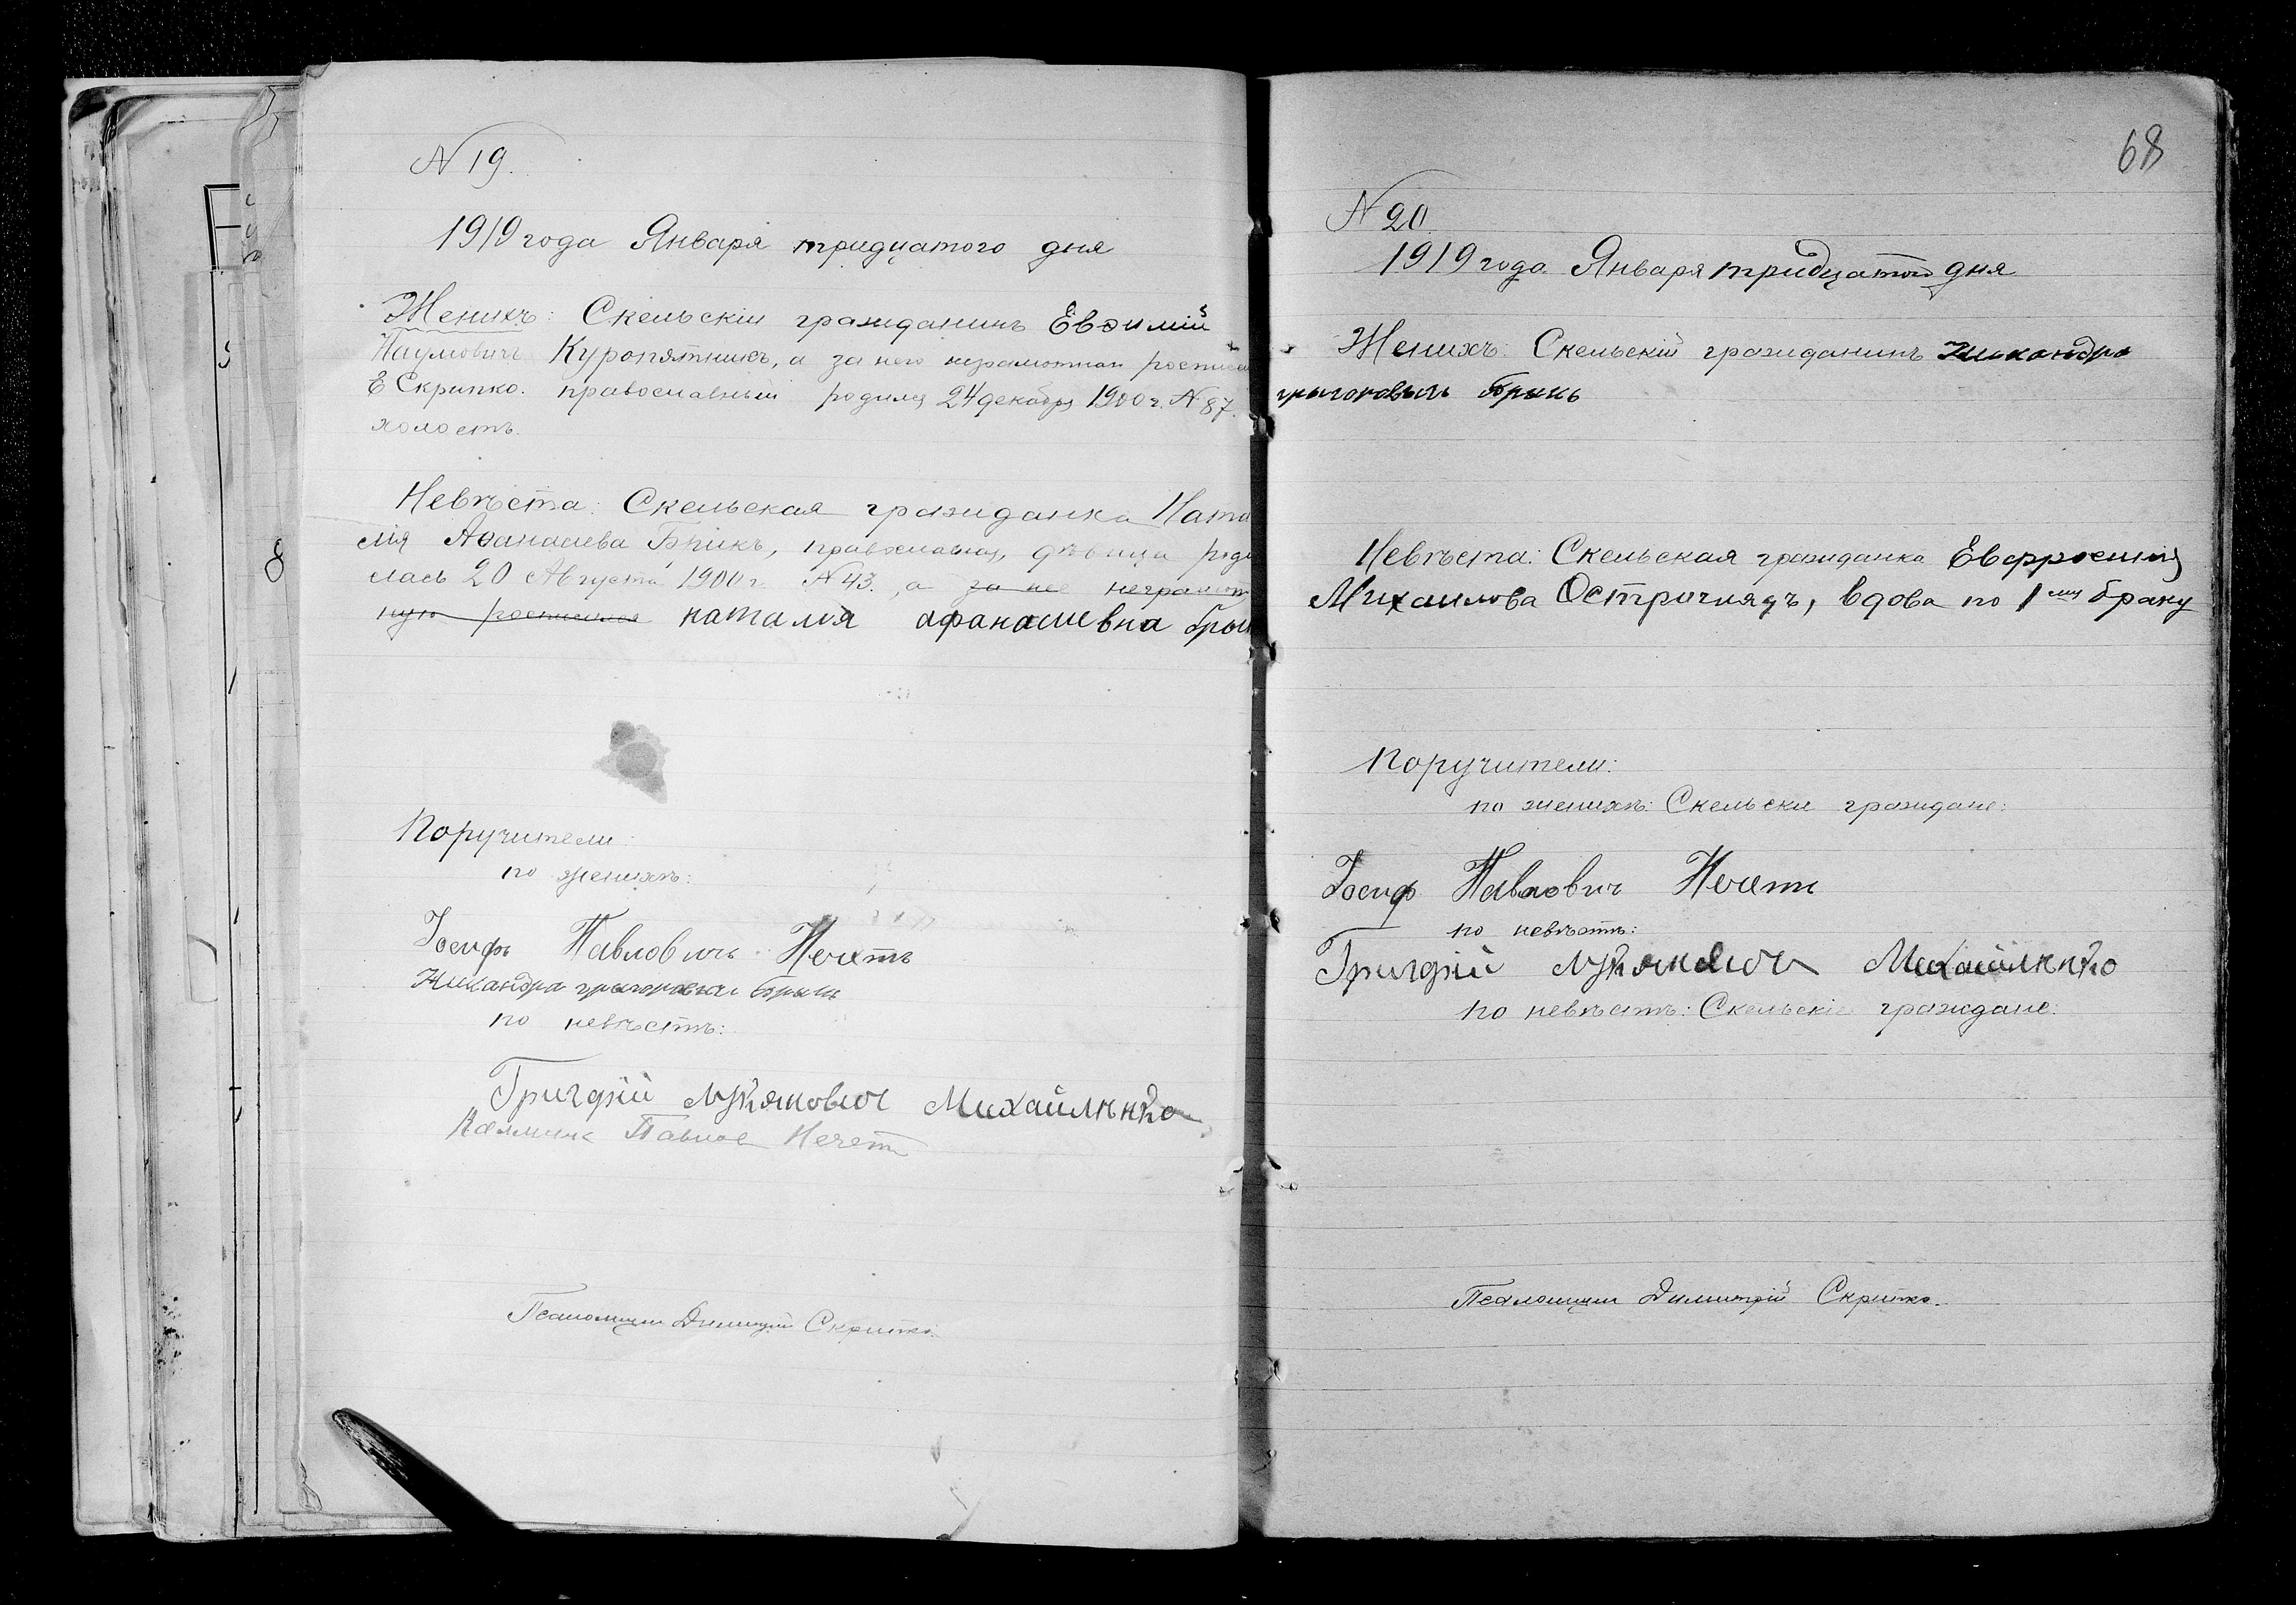 N 19.
1919 года Января тридцатого дня
Женихъ: Скельскій гражданинъ Евѳимій
Наумовичъ Куропятникъ, а за него неграмотнаго
Е Скрипко. православный родился 24 декабря 1900 г. N 87.
холостъ.
Невѣста: Скельская гражданка Ната
лія Аѳанасіева Брикъ, православная, дѣвица роди
лась 20 Августа 1900 г. N 43., а за нее неграмот
ную росписался наталия афанасиевна
Поручители:
по женихѣ:
Іосифъ Павловичъ Нечетъ
Никандра
по невѣстѣ:
Григорій Михайленко
Павлов Нечет
Псаломщик Димитрій Скрипко.
68
N 20.
1919 года Января тридцатого дня
Женихъ: Скельскій гражданинъ Никандра
григоровичь брикь
Невѣста: Скельская гражданка Евфросинія
Михаилова Остроглядъ, вдова по 1му браку
Поручители:
по женихѣ: Скельски граждане:
Іосиф Павлович Нечет
по невѣстѣ:
Григорій Михайленко
по невѣстѣ: Скельскіе граждане:
Псаломщик Димитрій Скрипко.
8